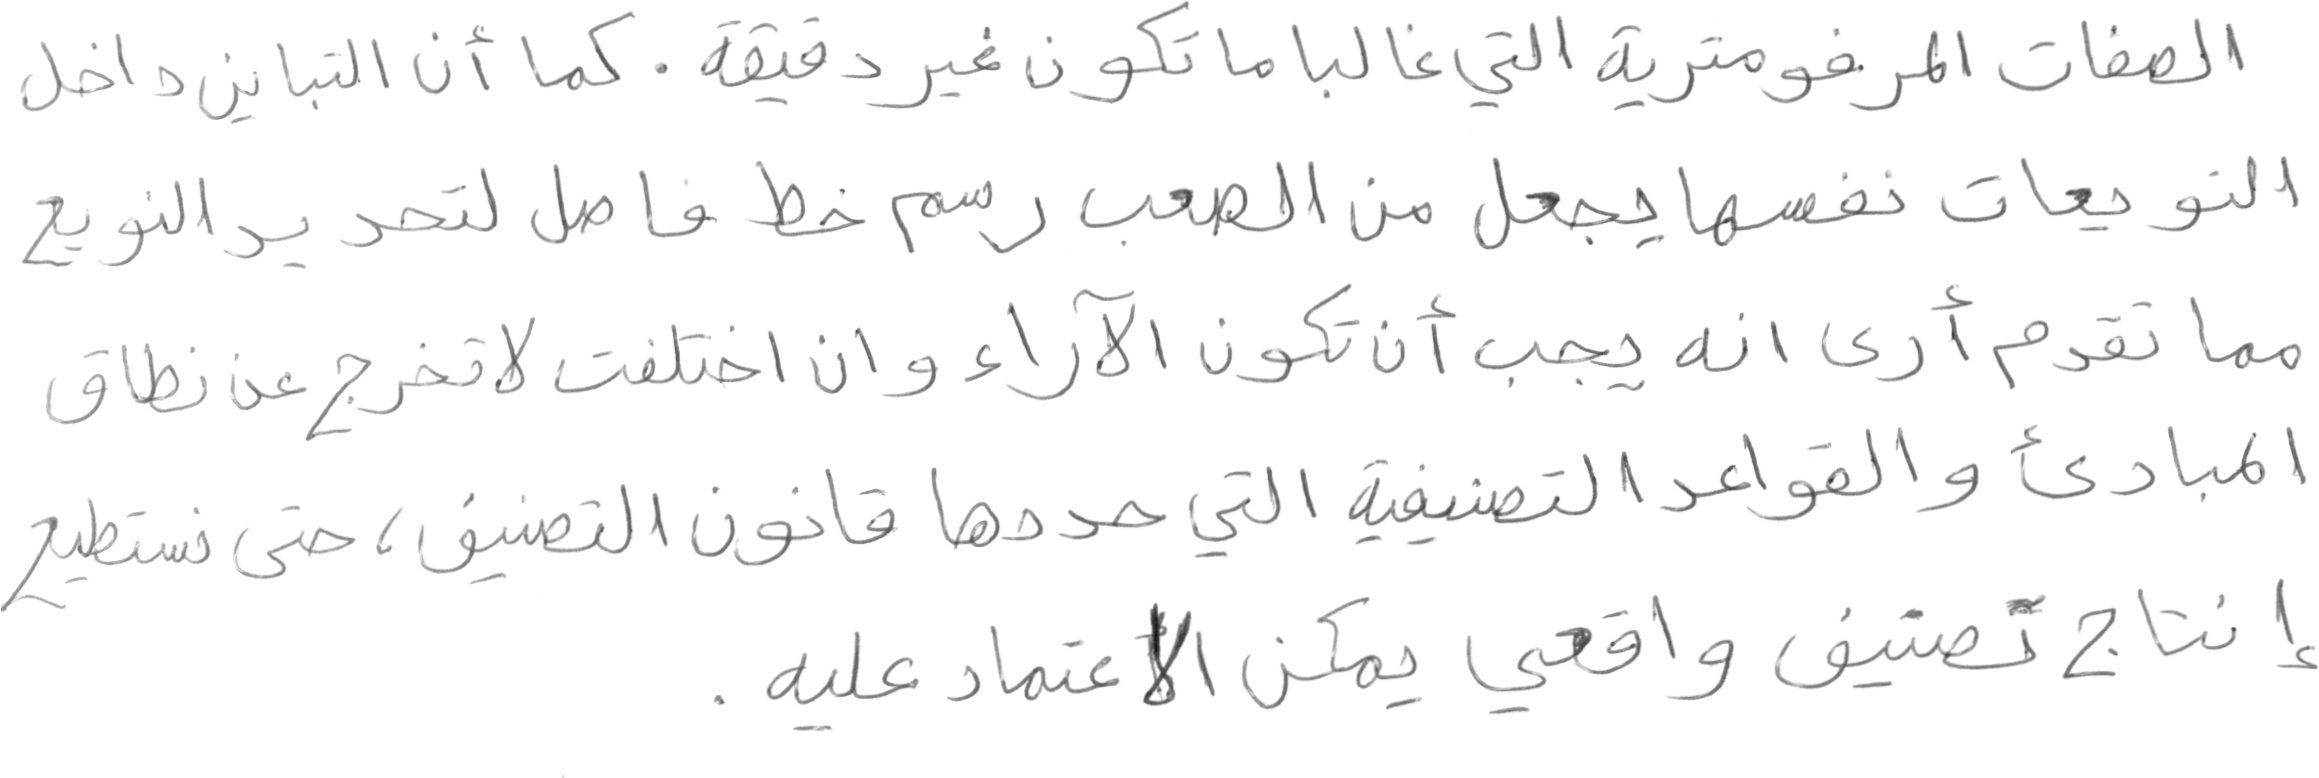 الصفات المرفومترية التي غالبا ما تكون غير دقيقة . كما أن التباين داخل
النويعات نفسها يجعل من الصعب رسم خط فاصل لتحديد النويع
مما تقدم أرى انه يجب أن تكون الآراء وان اختلفت لا تخرج عن نطاق
المبادئ والقواعد التصنيفية التي حددها قانون التصنيف ، حتى نستطيع
إنتاج تصنيف واقعي يمكن الاعتماد عليه .